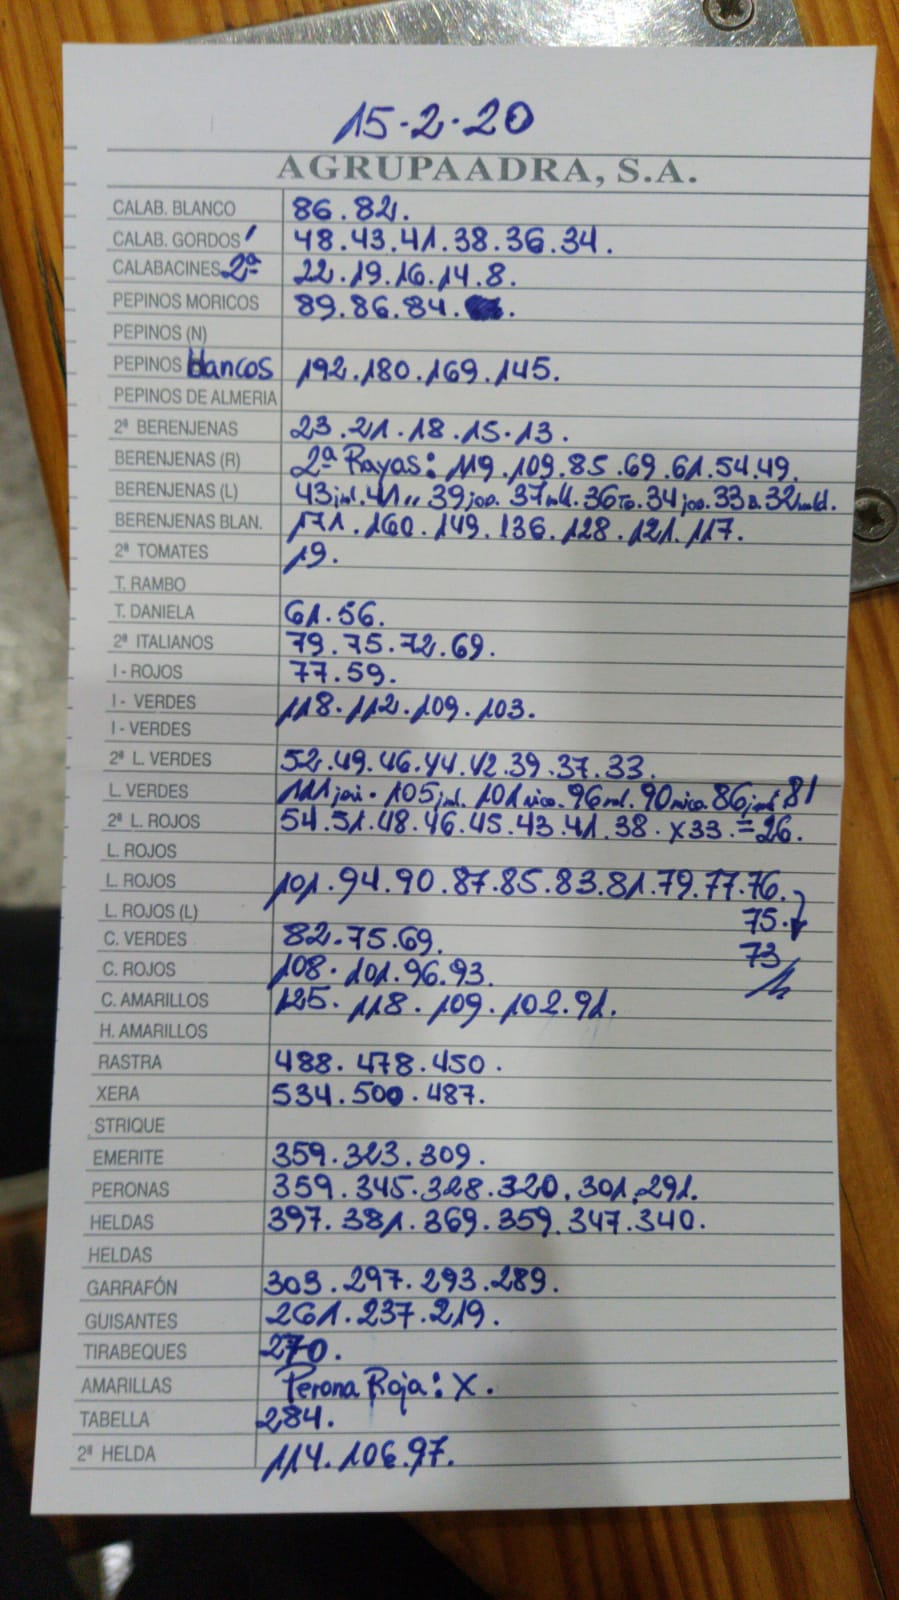 15-2-20
AGRUPAADRA, S.A.
CALAB. BLANCO 86.82.
CALAB. GORDOS 48.43.41.38.36.34.
CALABACINES 2ª 22.19.16.14.8.
PEPINOS MORICOS 89.86.84.
PEPINOS (N)
PEPINOS blancos 192.180.169.145.
PEPINOS DE ALMERIA
2ª BERENJENAS 23.21.18.15.13.
BERENJENAS (R) 2ª Rayas: 119.109.85.69.61.54.49.
BERENJENAS (L) 43 41 39 37 36 34 33 32
BERENJENAS BLAN. 171.160.149.136.128.121.117.
2ª TOMATES 19.
T. RAMBO
T. DANIELA 61.56.
2ª ITALIANOS 79.75.72.69.
I - ROJOS 77.59.
I - VERDES 118.112.109.103.
I - VERDES
2ª L. VERDES 52.49.46.44.42.39.37.33.
L. VERDES 111 105 101 96 90 86 81
2ª L. ROJOS 54.51.48.46.45.43.41.38. x33.=26.
L. ROJOS
L. ROJOS 101.94.90.87.85.83.81.79.77.76.
L. ROJOS (L) 75.
C. VERDES 82.75.69. 73
C. ROJOS 108.101.96.93.
C. AMARILLOS 125.118.109.102.91.
H. AMARILLOS
RASTRA 488.478.450.
XERA 534.500.487.
STRIQUE
EMERITE 359.323.309.
PERONAS 359.345.328.320.301.291.
HELDAS 397.381.369.359.347.340.
HELDAS
GARRAFÓN 303.297.293.289.
GUISANTES 261.237.219.
TIRABEQUES 270.
AMARILLAS Perona Roja: X.
TABELLA 284.
2ª HELDA 114.106.97.